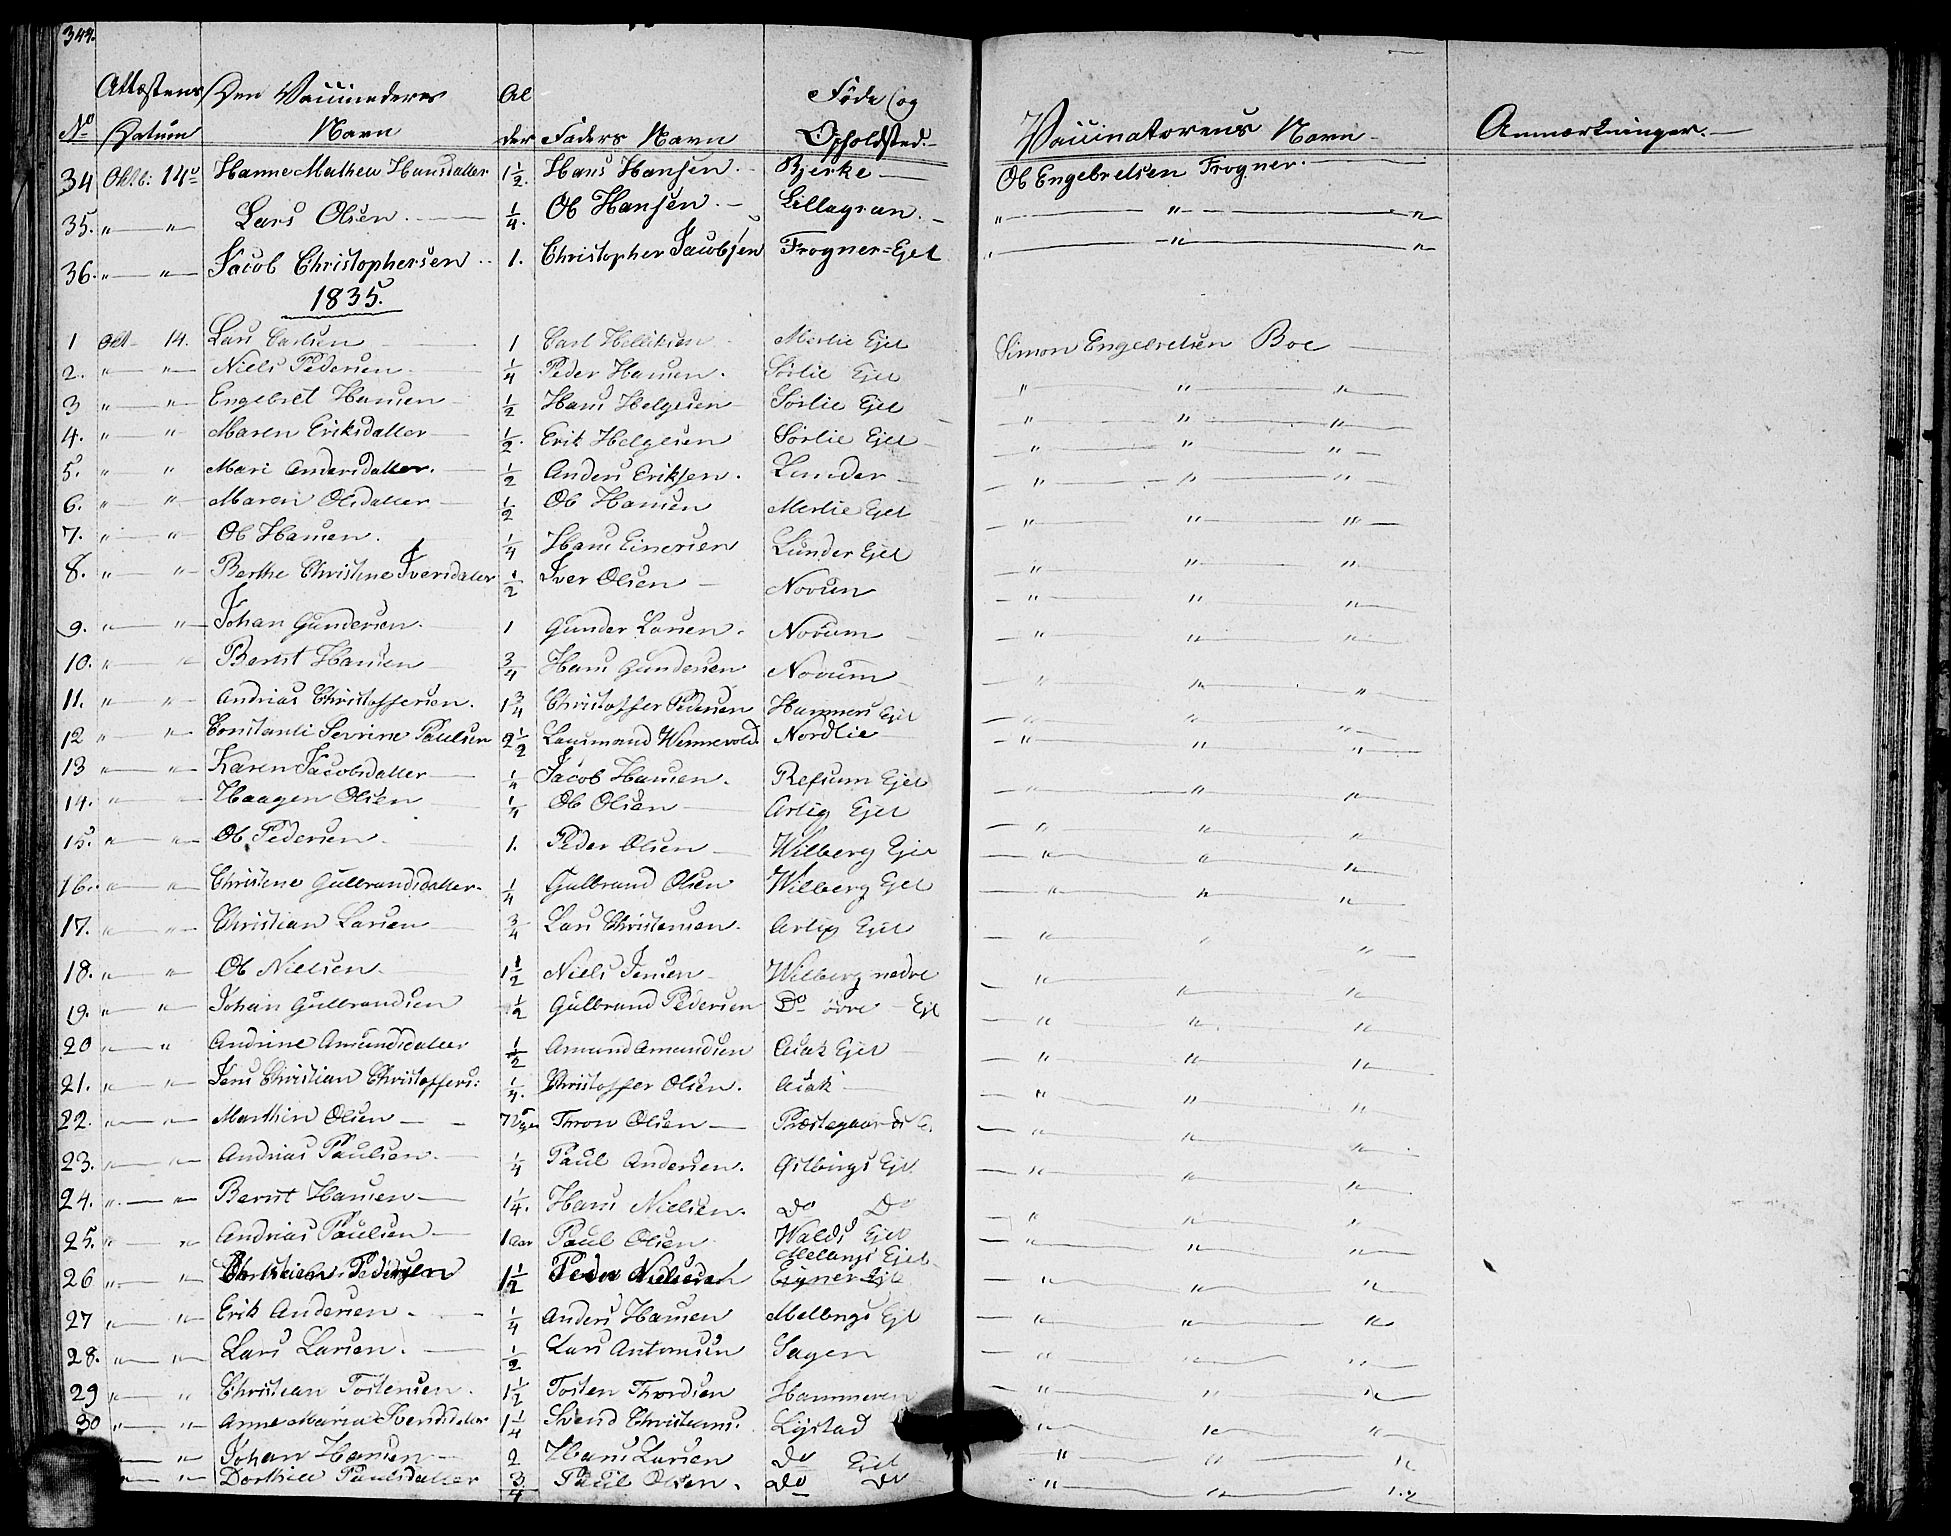 344.
Attestens Den Vaccineredes Al Føde og
No Datum Navn der Faders Navn Opholdsted. Vaccinatorens Navn Anmærkninger.
34 Oktb: 14de Hanne Mathea Hansdatter 1 1/2. Hans Hansen. Bjerke Ole Engebretsen Frogner.
35. " " Lars Olsen. 1/4. Ole Hansen. Lillegran. " " "
36. " " Jacob Christophersen 1. Christopher Jacobsen Frogner=Ejet " " "
1835.
1 Oct 14. Lars Carlsen 1 Carl Merlie Ejet Simon Engebretsen Boe
2. " " Niels Pedersen 1/4 Peder Hansen. Sørlie Ejet " " "
3 " " Engebret Hansen 1/2 Hans Helgesen Sørlie Ejet " " "
4. " " Maren Eriksdatter 1/2. Erik Helgesen Sørlie Ejet " " "
5. " " Mari Andersdatter. 1/2 Anders Eriksen. Lunder " " "
6. " " Maren Olsdatter 1/2 Ole Hansen Merlie Ejet " " "
7. " " Ole Hansen. 1/4 Hans Einersen Lunder Ejet " " "
8. " " Berthe Christine Iversdatter 1/2 Iver Olsen Novum " " "
9. " " Johan Gundersen. 1 Gunder Larsen. Novum " " "
10. " " Bernt Hansen 3/4 Hans Gundersen Novum " " "
11. " " Andrias Christoffersen. 1 3/4 Christoffer Pedersen Hammers Ejet " " "
12 " " Constanti Sevrine Paulsen 2 1/2 Lensmand Wennevold Nordlie " " "
13 " " Karen Jacobsdatter 1/4 Jacob Hansen. Refsum Ejet " " "
14. " " Haagen Olsen 1/4 Ole Olsen Arlig Ejet " " "
15. " " Ole Pedersen 1. Peder Olsen Wilberg Ejet " " "
16. " " Christine Gulbrandsdatter. 1/4 Gulbrand Olsen Wilberg Ejet " " "
17. " " Christian Larsen 3/4 Lars Christensen. Arlig Ejet " " "
18. " " Ole Nielsen 1 1/2 Niels Jensen Wilberg nedre " " "
19. " " Johan Gulbrandsen 1/2 Gulbrand Pedersen Do øvre Ejt " " "
20 " " Andrine Amundsdatter 1/2 Amund Amundsen Asak Ejet " " "
21. " " Jens Christian Christoffers: 1/4. Christoffer Olsen. Asak " " "
22. " " Marthin Olsen 7 Uger Thron Olsen Præstegaards E. " " "
23. " " Andrias Paulsen. 1/4 Paul Andersen. Østbyngs Ejt " " "
24. " " Bernt Hansen 1 1/4. Hans Nielsen. Do Do " " "
25. " " Andrias Paulsen 1 Aar Paul Olsen Walds Ejet " " "
Melbngs Ejet
26 " " Christian Pedersen 1 1/2 Peder Nielsen Ejet " " "
27 " " Erik Andersen 1/4 Anders Hansen Melbngs Ejt " " "
28. " " Lars Larsen. 1/2 Lars Antonsen Sagen " " "
29 " " Christian Tostensen. 1 1/2 Tosten Thordsen Hammeren " " "
30 " " Anne Maria Svendsdatter 1 1/4 Svend Christians. Lystad " " "
" " Johan Hansen 2 Hans Larsen Do Ejet " " "
" " Dorthea Paulsdatter 3/4 Paul Olsen. Do Do " " "